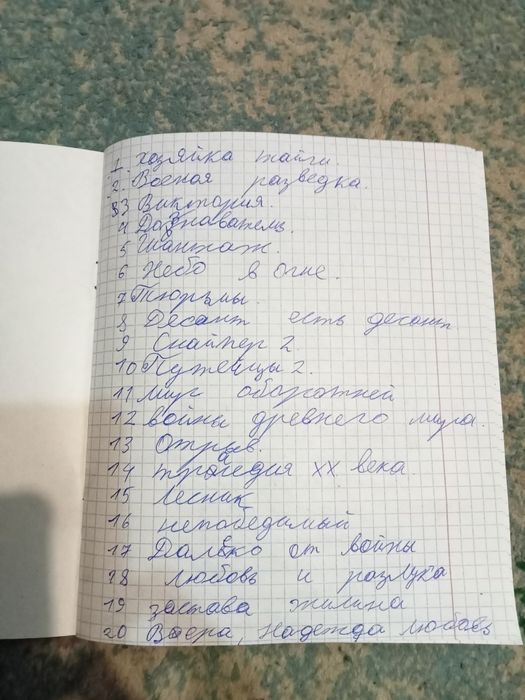 1. хозяйка тайги.
2. Военая разведка.
3 Виктория.
4 Дознаватель.
5 Шантаж.
6 Небо в огне.
7 Тюрьмы.
8 Десант есть десант
9 Снайпер 2.
10 Путейцы 2.
11 Мир оборотней
12 войны древнего мира.
13 Отрыв.
14 трагедия XX века.
15 Лесник
16 непобедимый
17 Далеко от войны
18 любовь и разлука
19 застава жилина
20 Вера, Надежда любовь